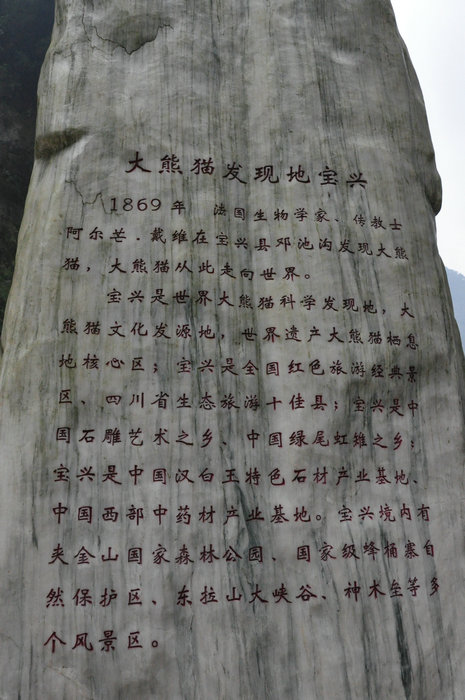 大熊猫发现地宝兴
1869年 法国生物学家、传教士
阿尔芒.戴维在宝兴县邓池沟发现大熊
猫，大熊猫从此走向世界。
宝兴是世界大熊猫科学发现地，大
熊猫文化发源地，世界遗产大熊猫栖息
地核心区；宝兴是全国红色旅游经典景
区、四川省生态旅游十佳县；宝兴是中
国石雕艺术之乡、中国绿尾虹雉之乡；
宝兴是中国汉白玉特色石材产业基地、
中国西部中药材产业基地。宝兴境内有
夹金山国家森林公园、国家级蜂桶寨自
然保护区、东拉山大峡谷、神木垒等多
个风景区。